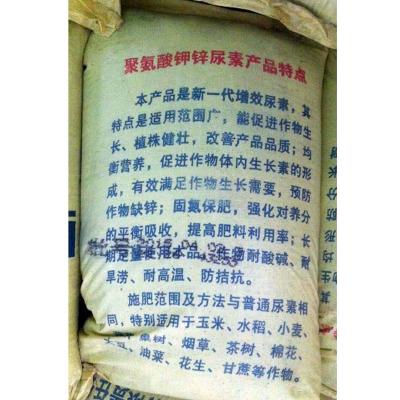 聚氨酸钾锌尿素产品特点
本产品是新一代增效尿素，其
特点是适用范围广，能促进作物生
长、植株健壮，改善产品品质；均
衡营养，促进作物体内生长素的形
成，有效满足作物生长需要，预防
作物缺锌；固氮保肥，强化对养分
的平衡吸收，提高肥料利用率；长
期足量使用本品，作物耐酸碱、耐
旱涝、耐高温、防拮抗。
施肥范围及方法与普通尿素相
同，特别适用于玉米、水稻、小麦、
果树、烟草、茶树、棉花、
油菜、花生、甘蔗等作物。